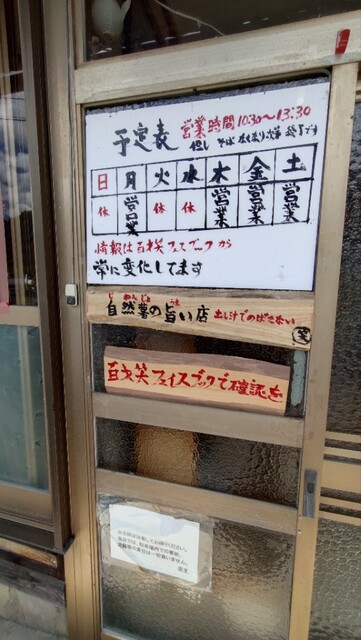 予定表 営業時間10:30〜13:30
但し そば なくなり次第 終了です
日 月 火 水 木 金 土
休 営業 休 休 営業 営業 営業
情報は百才笑フェイスブックから
常に変化してます
じねんじょ うま
自然薯の旨い店 出し汁でのばさない
笑
百才笑フェイスブックで確認を
店主